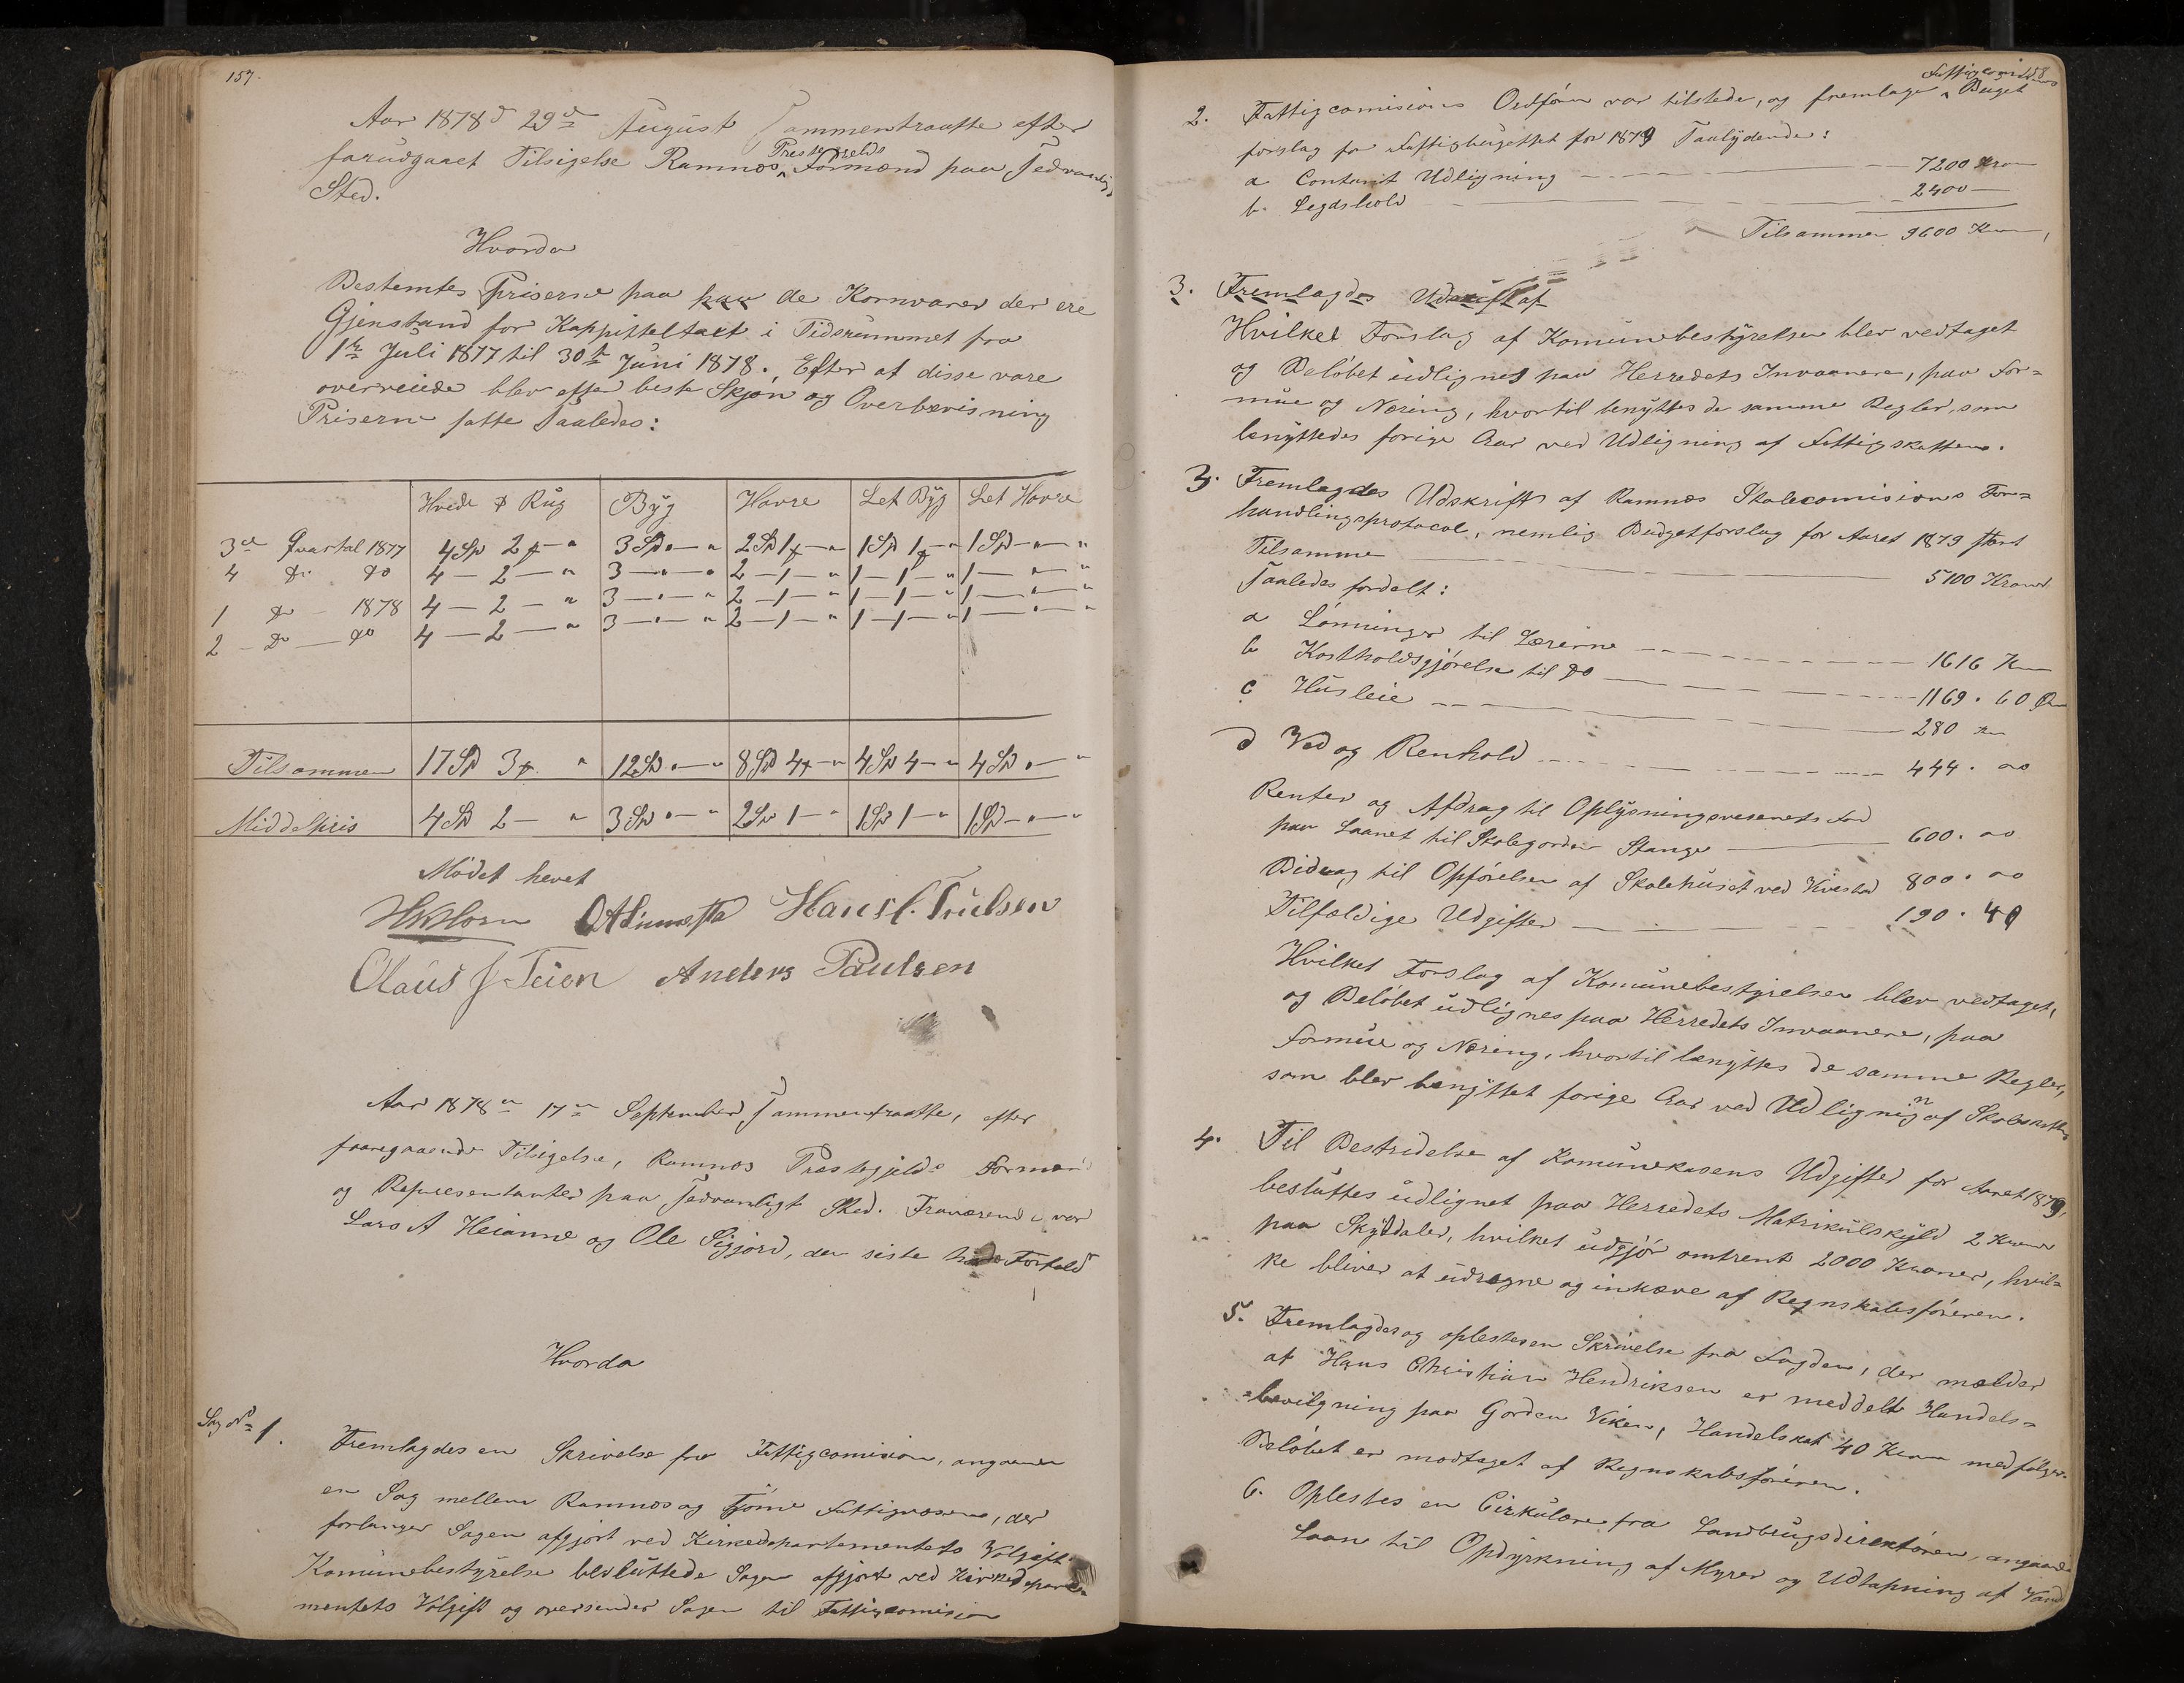 157.
Aar 1878 d 29de August Sammentraatte efter
forudgaaet Tilsigelse Ramnæs Prestegjelds Formænd paa Sedvanlig
Sted.
Hvorda
Bestemtes Priserne paa paa de Kornvarer der ere
Gjenstand for Kappitteltakt i Tidsrummet fra
1te Juli 1877 til 30te Juni 1878. Efter at disse vare
overveiede blev efter beste Skjøn og Overbevisning
Priserne satte Saaledes:
Hvede & Rug Byg Havre Let Byg Let Havre
3die Qvartal 1877 4 Spd 2 — " 3 Spd " — " 2 Spd 1 — " 1 Spd 1 — " 1 Spd — " — "
4 do do 4 — 2 — " 3 — " — " 2 — 1 — " 1 — 1 — " 1 — " — "
1 do 1878 4 — 2 — " 3 — " — " 2 — 1 — " 1 — 1 — " 1 — " — "
2 — do — do 4 — 2 — " 3 — " — " 2 — 1 — " 1 — 1 — " 1 — " — "
Tilsammen 17 Spd 3 " 12 Spd " — " 8 Spd 4 — " 4 Spd 4 — " 4 Spd " — "
Middelpris 4 Spd 2 — " 3 Spd " — " 2 Spd 1 — " 1 Spd 1 — " 1 Spd — " — "
Mødet hevet
HKHorn Hans C. Trulsen
Olaus J Teien Anders Paulsen
Aar 1878 den 17de September Sammentraatte, efter
foregaaende Tilsigelse, Ramnæs Præstegjelds Formænd
og Repræsentanter paa Sedvanligt Sted. Fraværende var
Lars A Heianne og Ole Sigjord, den siste havde Forfald
Hvorda
Sag No 1. Fremlagdes en Skrivelse fra Fattigcomision, angaaende
en Sag mellem Ramnæs og Tjøme Fattigvæsene, der
forlanger Sagen afgjort ved Kirkedepartementets Volgift.
Komunebestyrelse besluttede Sagen afgjort ved Kirkedeparte-
mentets Volgift og oversender Sagen til Fattigcomision
158
2. Fattigcomisions Ordfører var tilstede, og fremlagde Fattigcomisions Buget
forslag for Fattigbugettet for 1879 Saalydende:
a Contant Udligning — 7200 Kroner
b. Legdshold — 2400 —
Tilsammen 9600 Kroner,
3. Fremlagdes Udskrift af
Hvilket Forslag af Komunebestyrelsen blev vedtaget
og Beløbet udlignes paa Herredets Invaanere, paa For=
mue og Næring, hvortil benyttes de samme Regler, som
benyttedes forige Aar ved Udligning af Fattigskatten.
3. Fremlagdes Udskrift af Ramnæs Skolecomisions For=
handlingsprotocol, nemlig Budgetforslag for Aaret 1879 stort
Tilsammen — 5100 Kroner
Saaledes fordelt:
a Lønninger til Lærerne — 1616 Kr
b Kostholdsgjørelse til do — 1169. 60 Øre
c Husleie — 280 Kr
d Ved og Renhold — 444. 00
Renter og Afdrag til Oplysningsvesenets Fond
paa Laanet til Skolegorden Stange — 600. 00
Bidrag til Opførelsen af Skolehuset ved Kvestad 800. 00
Tilfældige Udgifter — 190. 40
Hvilket Forslag af Komunebestyrelsen blev vedtaget,
og Beløbet udlignes paa Herredets Invaanere, paa
Formue og Næring, hvortil benyttes de samme Regler,
som blev benyttet forige Aar ved Udligning af Skoleskatten
4. Til Bestridelse af Komunekasens Udgifter for Aaret 1879,
besluttes udlignet paa Herredets Matrikulskyld 2 Kroner
paa Skyldaler, hvilket udgjør omtrent 2000 Kroner, hvil=
ke bliver at udregne og inkræve af Regnskabsføreren.
5. Fremlagdes og oplestes en Skrivelse fra Fogden, der melder
at Hans Christian Hendriksen er meddelt Handels=
bevilgning paa Gorden Viken, Handelskat 40 Kroner medfølger.
Beløbet er modtaget af Regnskabsføreren.
6. Oplestes en Cirkulære fra Landbrugsdirektøren, angaaende
Laan til Opdyrkning af Myrer og Udtapning af Vand